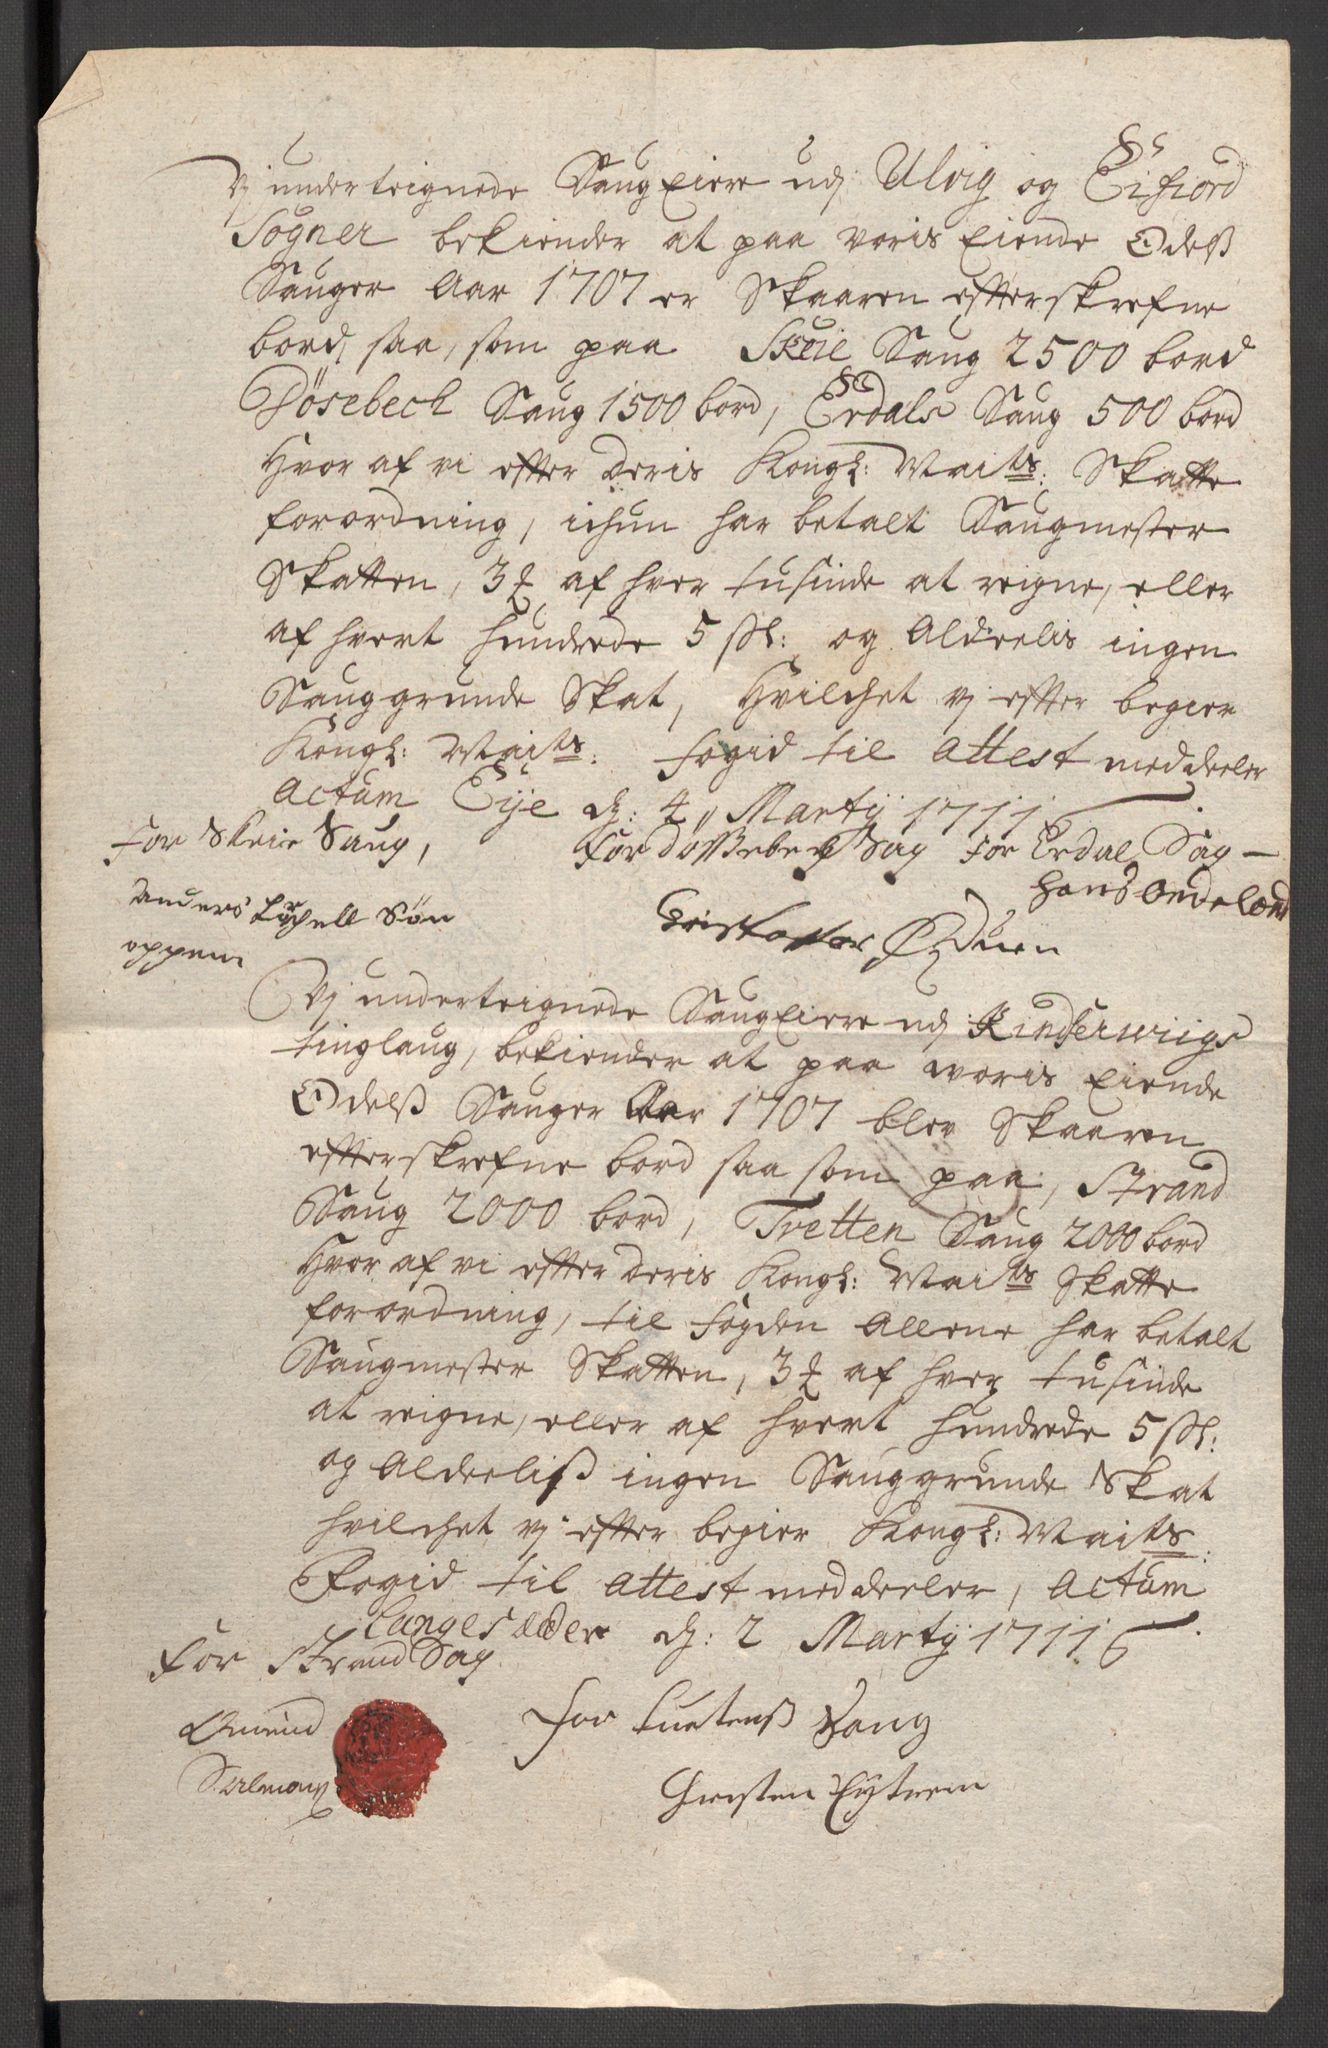 Vj underteignede Saug Eiere udj Ulvig og Eifiord
Sogner bekiender at paa voris Eiende Odelß
Sauger Aar 1707 er Skaaren efterskrefne
bord, saa, som paa Skeie Saug 2500 bord
Dösebech Saug 1500 bord, Erdals Saug 500 bord
Hvor af vi efter Deris Kongl: Maits: Skatte
forordning, ichun har betalt Saugmester
Skatten, 3 af hver tusinde at reigne, eller
af hvert hundrede 5 sk: og Aldeelis ingen
Sauggrunde Skat, Hvilchet vj efter begier
Kongl: Maits: fogid til Attest meddeeler
Actum Eije d: 4 Martij 1711
For Skeie Saug, For Dössebech Sag For Erdal Sag
Anders Sön hans
oppem Cristoffer
Vj underteignede Saug Eiere udj Kindserwiigs
tinglaug, bekiender at paa woris Eiende
Odelß Sauger Aar 1707 blev Skaaren
efterskrefne bord saa som paa, Strand
Saug 2000 bord, Tvetten Saug 2000 bord
Hvor af vi efter Deris Kongl: Maits Skatte
forordning, til fogden Allene har betalt
Saugmester Skatten, 3 af hver tusinde
at reigne, eller af hvert hundrede 5 sk:
og Aldeeliß ingen Sauggrunde Skat
hvilchet vj efter begier Kongl: Maits:
Fogid til Attest meddeeler, Actum
Langesæder d: 2 Martij 1711
For Strand Sag
For Tuetenß Saug
Amund
Christen Eytrem